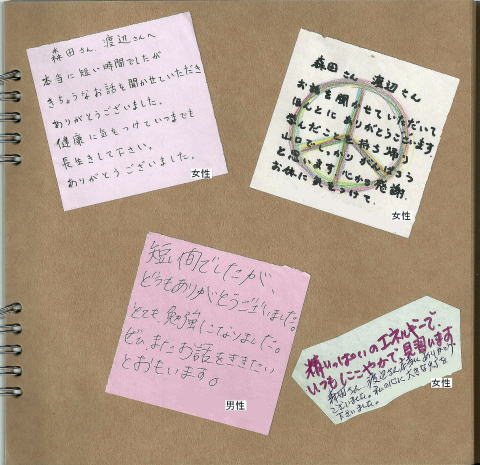 森田さん、渡辺さんへ
本当に短い時間でしたが
きちょうなお話を聞かせていただき
ありがとうございました。
健康に気をつけていつまでも
長生きして下さい。
ありがとうございました。
女性
森田さん 渡辺さん
お話を聞かせていただいて
ほんとにありがとうございます。
学んだことを持ち帰り
山口で
と思います。心から感謝。
お体に気をつけて。
女性
短い間でしたが、
どうもありがとうございました。
とても勉強になりました。
ぜひまたお話をききたい
とおもいます。
男性
精いっぱいのエネルギーで、
いつもにこやかで見習います
森田さん 渡辺さん本当にありがとう
ございました。私の心に大きな
下さいました。
女性